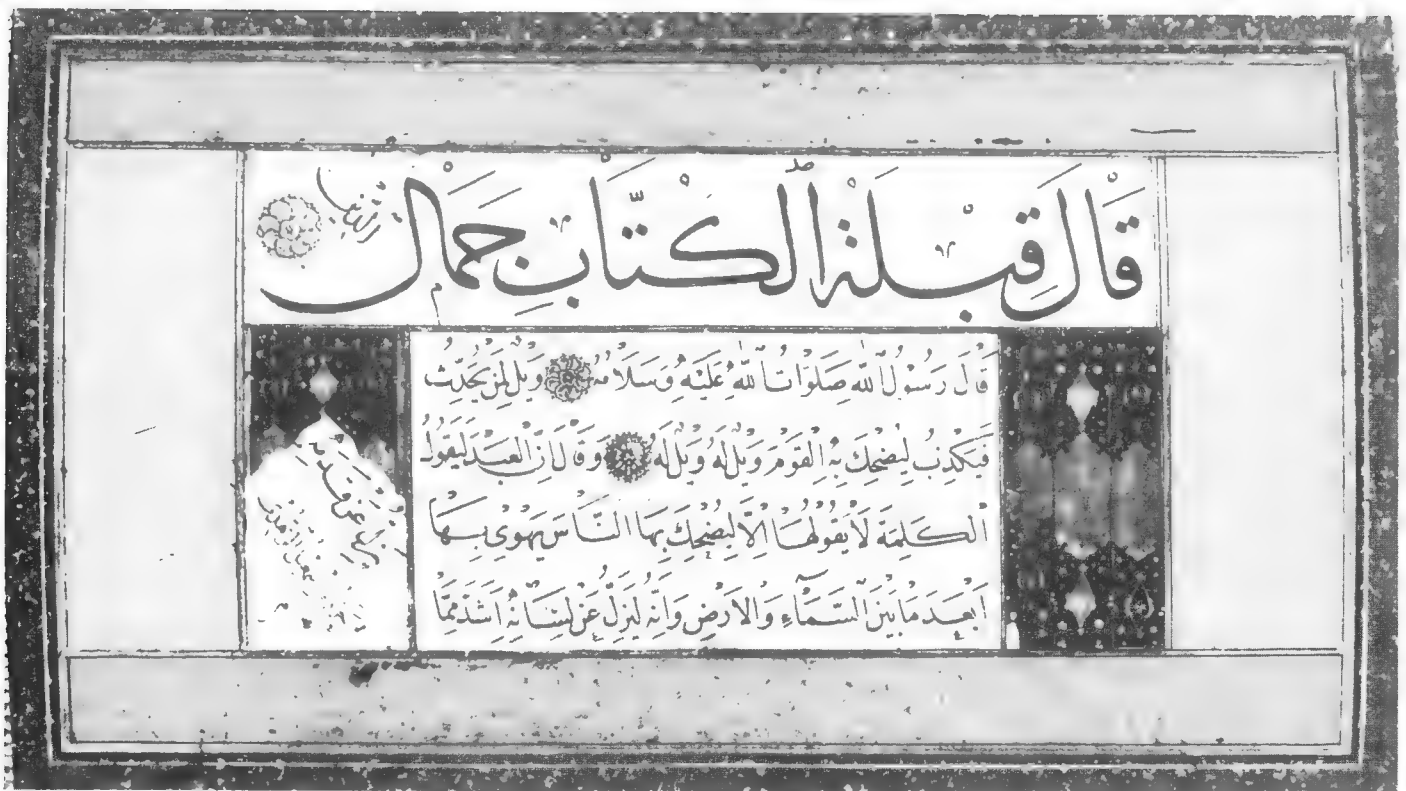 قَالَ قِبْلَةُ الْكُتَّابِ جَمَالُ الدِّين
قَالَ رَسُولُ اللهِ صَلَوَاتُ اللهِ عَلَيْهِ وَسَلَامُهُ وَيْلٌ لِمَنْ يُحَدِّثُ
فَيَكْذِبُ لِيُضْحِكَ بِهِ الْقَوْمَ وَيْلٌ لَهُ وَيْلٌ لَهُ وَقَالَ إِنَّ الْعَبْدَ لَيَقُولُ
الْكَلِمَةَ لَا يَقُولُهَا إِلَّا لِيُضْحِكَ بِهَا النَّاسَ يَهْوِي بِهَا
أَبْعَدَ مَا بَيْنَ السَّمَاءِ وَالْأَرْضِ وَإِنَّهُ لَيَزِلُّ عَنْ لِسَانِهِ أَشَدَّ مِمَّا
يَزِلُّ عَنْ قَدَمِهِ